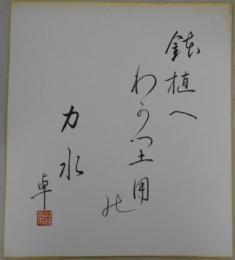 鉢植へ
わかつ土用の
力水
卓